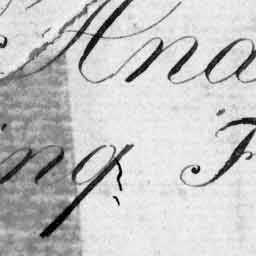 And
ing F